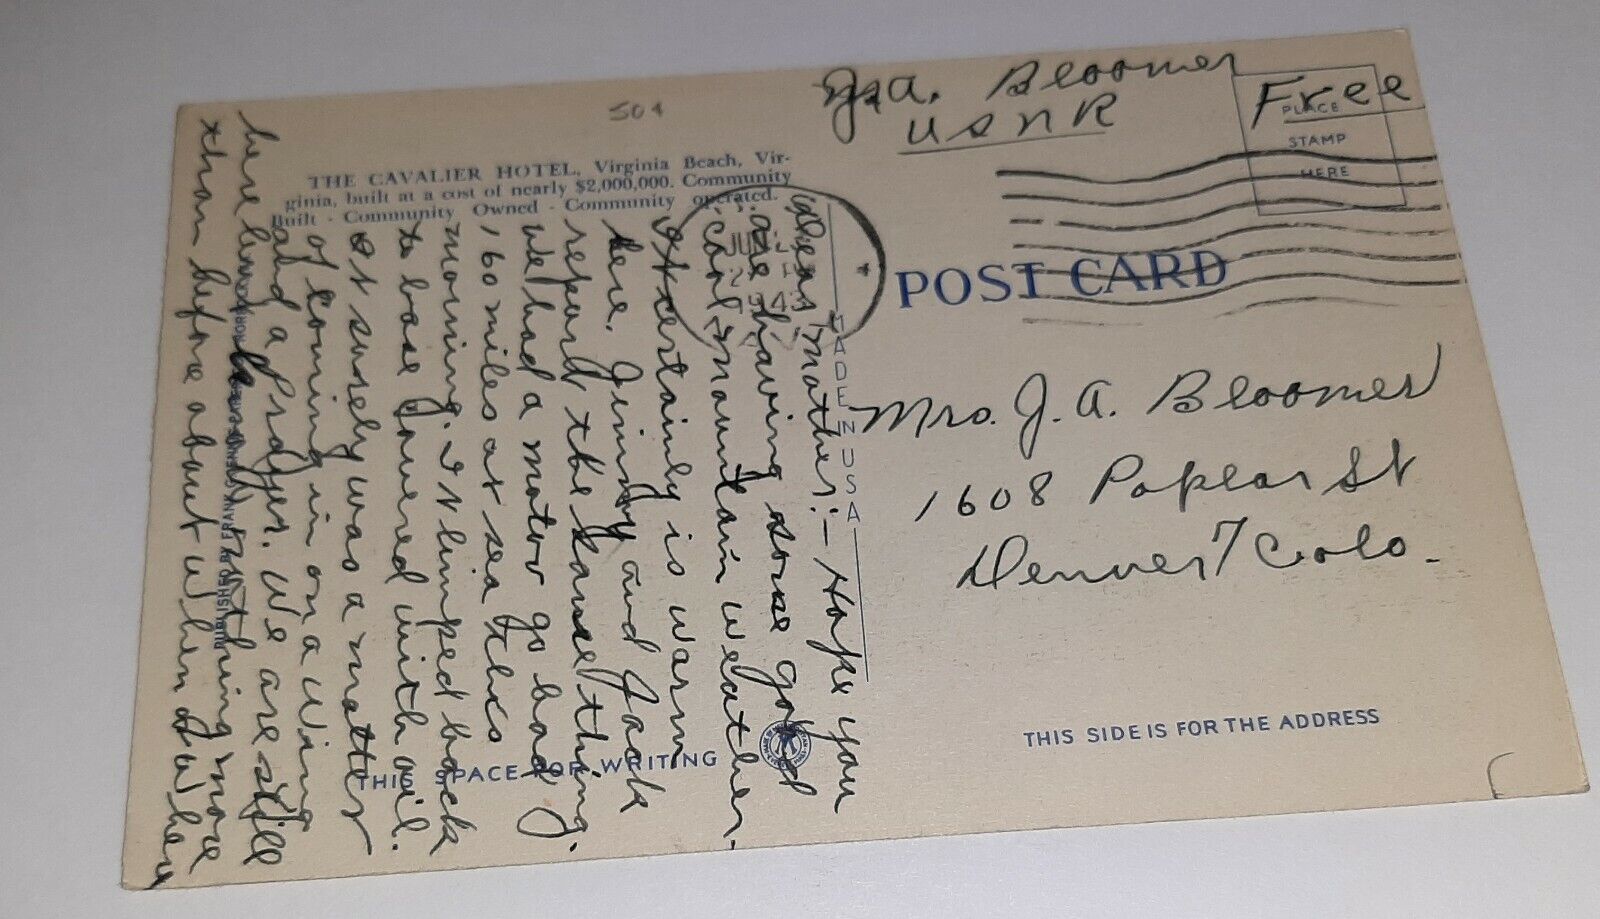 504
J. A. Bloomer
USNR
Free
PLACE
STAMP
HERE
THE CAVALIER HOTEL, Virginia Beach, Vir-
ginia, built at a cost of nearly $2,000,000. Community
Built - Community Owned - Community operated.
JUN
2
1943
POST CARD
MADE IN USA
Mrs. J. A. Bloomer
1608 Poplar St
Denver 7 Colo.
THIS SIDE IS FOR THE ADDRESS
THIS SPACE FOR WRITING
PUBLISHED BY
Dear Mother:- Hope you
are having some good
cool mountain weather.
It certainly is warm
here. Jimmy and Jack
report the same thing.
We had a motor go bad
160 miles at sea this
morning. It limped back
to base covered with oil.
It surely was a matter
of coming in on a Wing
and a Prayer. We are still
here know nothing more
than before about when & where